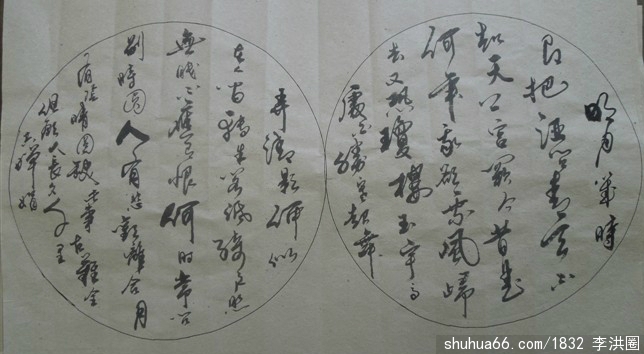 明月幾時
有把酒問青天不
知天上宫闕今昔是
何年我欲乘風歸
去又恐瓊樓玉宇高
處不勝寒起舞
弄清影何似
在人间轉朱閣低綺户照
無眠不應有恨何时常向
别時圆人有悲歡離合月
有陰晴圆缺此事古難全
但願人長久千里
共嬋娟
shuhua66.com/1832 李洪圈